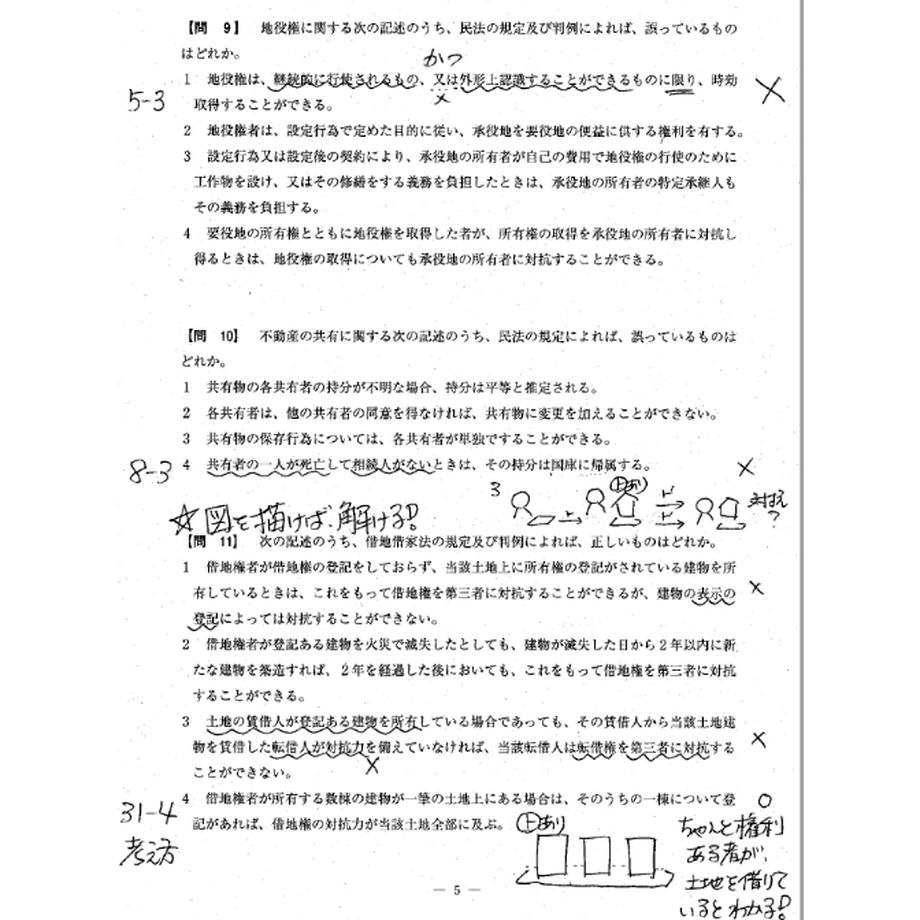 【問　9】　地役権に関する次の記述のうち、民法の規定及び判例によれば、誤っているもの
はどれか。
かつ
1　地役権は、継続的に行使されるもの、又は外形上認識することができるものに限り、時効
×
5-3
取得することができる。
2　地役権者は、設定行為で定めた目的に従い、承役地を要役地の便益に供する権利を有する。
3　設定行為又は設定後の契約により、承役地の所有者が自己の費用で地役権の行使のために
工作物を設け、又はその修繕をする義務を負担したときは、承役地の所有者の特定承継人も
その義務を負担する。
4　要役地の所有権とともに地役権を取得した者が、所有権の取得を承役地の所有者に対抗し
得るときは、地役権の取得についても承役地の所有者に対抗することができる。
【問　10】　不動産の共有に関する次の記述のうち、民法の規定によれば、誤っているものは
どれか。
1　共有物の各共有者の持分が不明な場合、持分は平等と推定される。
2　各共有者は、他の共有者の同意を得なければ、共有物に変更を加えることができない。
3　共有物の保存行為については、各共有者が単独ですることができる。
8-3
4　共有者の一人が死亡して相続人がないときは、その持分は国庫に帰属する。
×
3
上あり
☆図を描けば、解ける!
【問　11】　次の記述のうち、借地借家法の規定及び判例によれば、正しいものはどれか。
1　借地権者が借地権の登記をしておらず、当該土地上に所有権の登記がされている建物を所
有しているときは、これをもって借地権を第三者に対抗することができるが、建物の表示の
×
登記によっては対抗することができない。
2　借地権者が登記ある建物を火災で滅失したとしても、建物が滅失した日から2年以内に新
たな建物を築造すれば、2年を経過した後においても、これをもって借地権を第三者に対抗
することができる。
3　土地の賃借人が登記ある建物を所有している場合であっても、その賃借人から当該土地建
物を賃借した転借人が対抗力を備えていなければ、当該転借人は転借権を第三者に対抗する
×
×
ことができない。
31-4
考え方
4　借地権者が所有する数棟の建物が一筆の土地上にある場合は、そのうちの一棟について登
○
記があれば、借地権の対抗力が当該土地全部に及ぶ。
上あり
ちゃんと権利
ある者が、
土地を借りて
いるとわかる!
― 5 ―